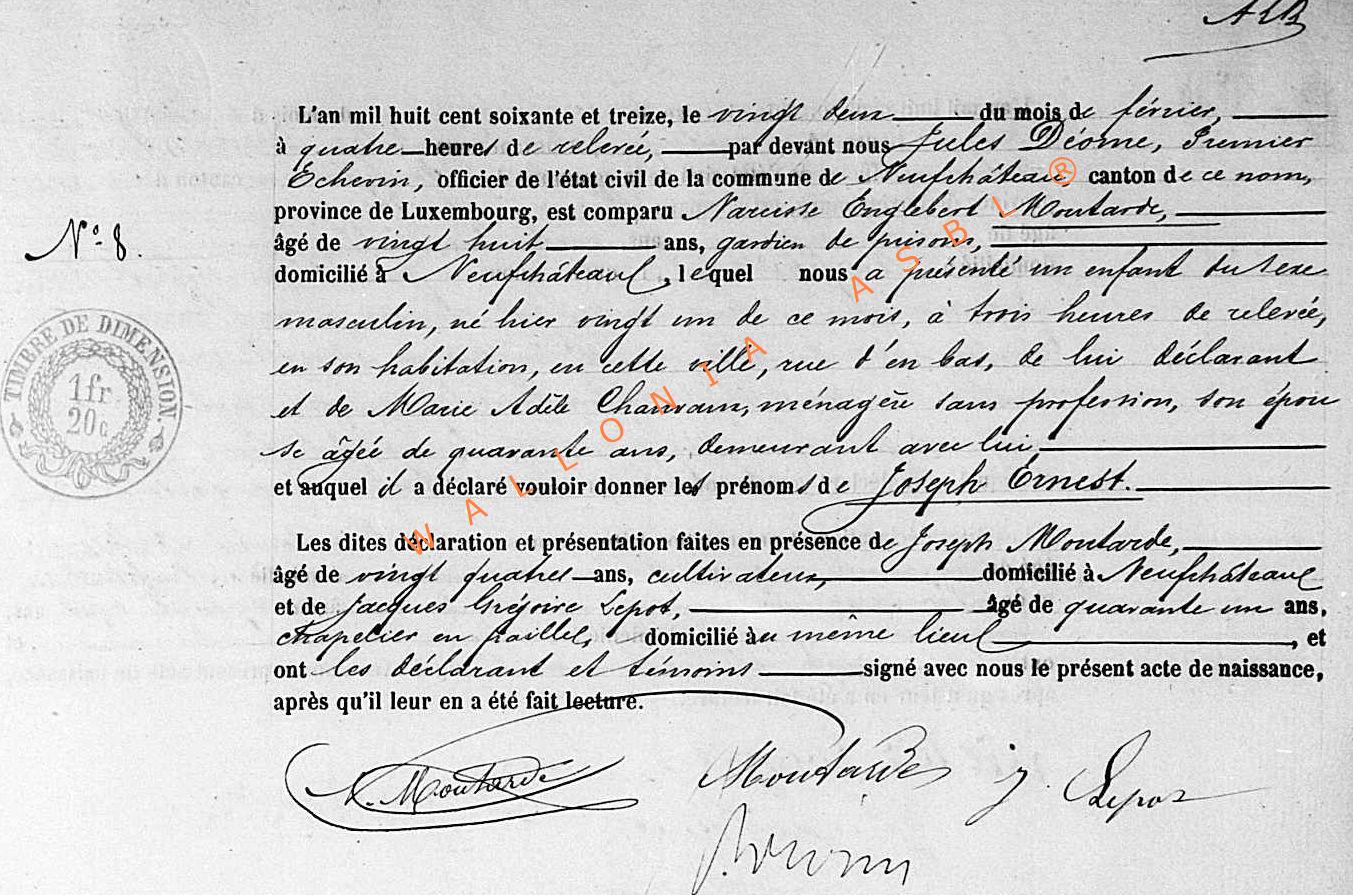 L'an mil huit cent soixante et treize, le vingt deux du mois de février,
à quatre heures de relevée, par devant nous Jules Déome, Premier
Echevin, officier de l'état civil de la commune de Neufchâteau ® canton de ce nom,
province de Luxembourg, est comparu Narcisse Englebert Moutarde,
N° 8.
âgé de vingt huit ans, gardien de prisons,
domicilié à Neufchâteau, lequel nous a présenté un enfant du sexe
masculin, né hier vingt un de ce mois, à trois heures de relevée,
en son habitation, en cette ville, rue d'en bas, de lui déclarant
et de Marie Adèle ménagère sans profession, son épou
se âgée de quarante ans, demeurant avec lui
et auquel il a déclaré vouloir donner les prénoms de Joseph Ernest.
TIMBRE DE DIMENSION.
1 fr
20 c
WALLONIA ASBL
Les dites déclaration et présentation faites en présence de Joseph Moutarde,
âgé de vingt quatre ans, cultivateur, domicilié à Neufchâteau
et de Jacques Grégoire Lepot, âgé de quarante un ans,
chapelier en paille, domicilié au même lieu, et
ont les déclarant et témoins signé avec nous le présent acte de naissance,
après qu'il leur en a été fait lecture.
N. Moutarde Moutarde J. Lepot